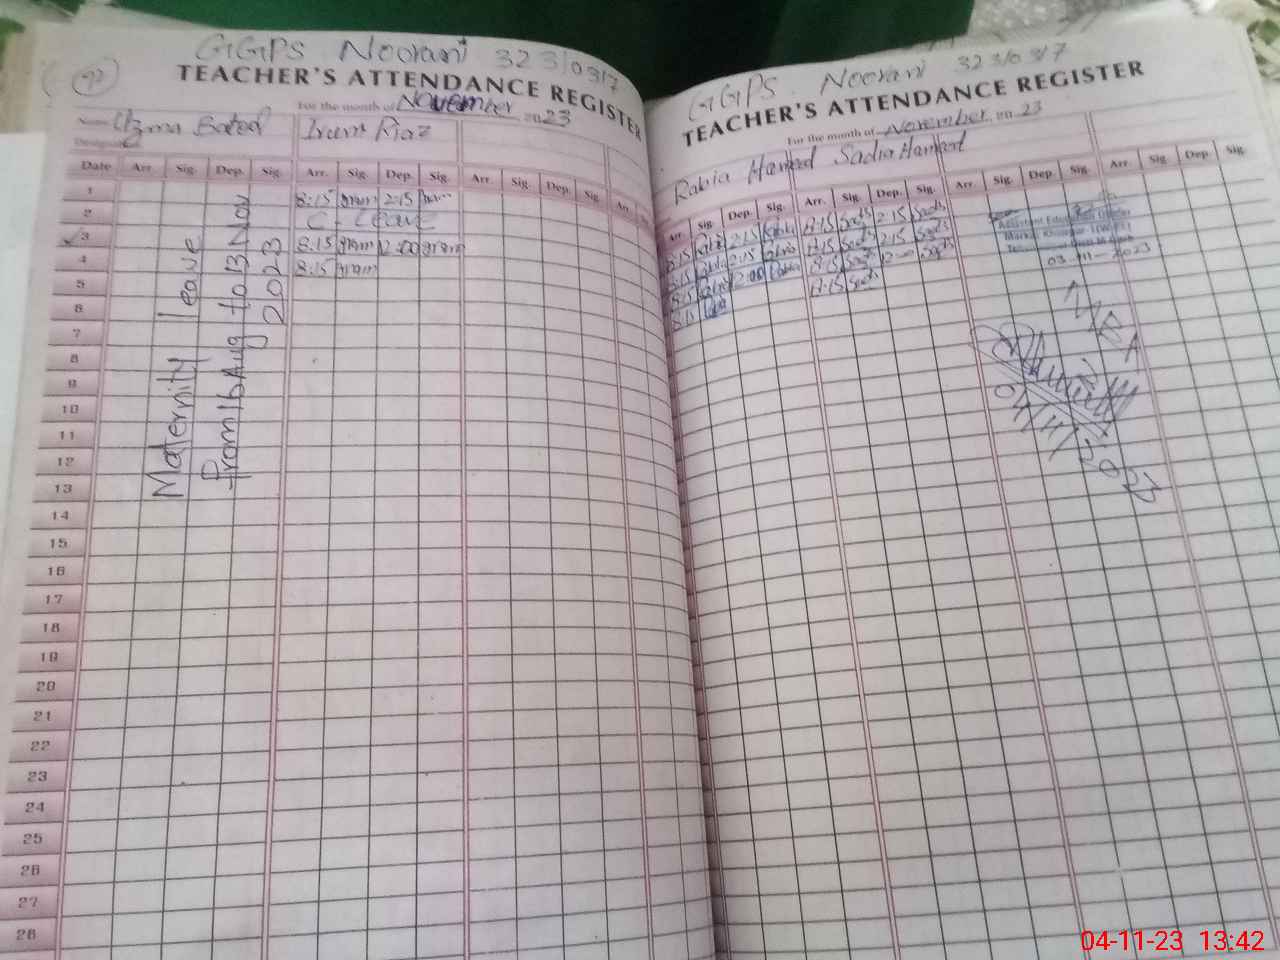 GGPS Noorani 32310317
92
TEACHER'S ATTENDANCE REGISTER
For the month of November 2023
Name Uzma Batool Irum Riaz
Designation
Date Arr. Sig. Dep. Sig. Arr. Sig. Dep. Sig. Arr. Sig. Dep. Sig. Arr. Sig.
1 8:15 Irum 2:15 Irum
2 C-Leave
3 8:15 Irum 12:00 Irum
4 8:15 Irum
5
6
7
8
9
10
11
12
13
14
15
16
17
18
19
20
21
22
23
24
25
26
27
28
Maternity leave
From 16 Aug to 13 Nov
2023
GGPS Noorani 32310317
TEACHER'S ATTENDANCE REGISTER
For the month of November 2023
Rabia Hameed Sadia Hameed
Arr. Sig. Dep. Sig. Arr. Sig. Dep. Sig. Arr. Sig. Dep. Sig. Arr. Sig. Dep. Sig.
8:15 Rabia 2:15 Rabia 8:15 Sadia 2:15 Sadia
8:15 Rabia 2:15 Rabia 8:15 Sadia 2:15 Sadia
8:15 Rabia 12:00 Rabia 8:15 Sadia 12:00 Sadia
8:15 Rabia 8:15 Sadia
Assistant Education Officer
03-11-2023
04/11/2023
04-11-23 13:42